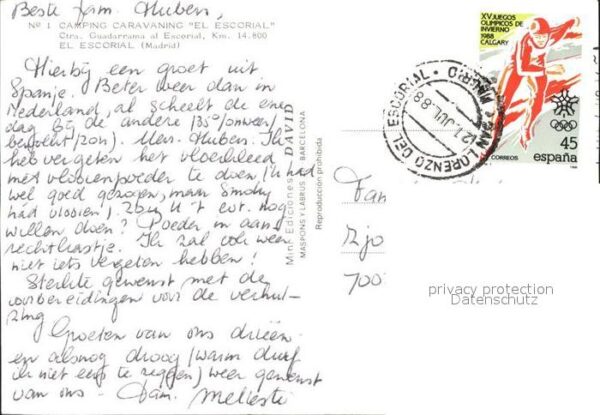 Beste fam. Huben,
Nº 1 CAMPING CARAVANING "EL ESCORIAL"
Ctra. Guadarrama al Escorial, Km. 14.800
EL ESCORIAL (Madrid)
Hierbij een groet uit
Spanje. Beter weer dan in
Nederland, al scheelt de ene
dag bij de andere (35°/onweer/
bewolkt/zon). Mevr. Huben. Ik
heb vergeten het vloerkleed
met vlooienpoeder te doen (ik had
wel goed gezogen, maar Smoky
had vlooien). Zou U 't evt. nog
willen doen? Poeder in aan-
rechtkastje. Ik zal ook weer
niet iets vergeten hebben!
Sterkte gewenst met de
voorbereidingen voor de verhui-
zing
Groeten van ons drieën
en alsnog droog (warm durf
ik niet eens te zeggen) weer gewenst
van ons - Fam.
Mini Ediciones DAVID
MASPONS Y LABRUS - BARCELONA
Reproducción prohibida
XV JUEGOS
OLIMPICOS DE
INVIERNO
1988
CALGARY
45
CORREOS
españa
SAN LORENZO DEL ESCORIAL · MADRID
21 JUL. 88
Fam
Rijo
700
privacy protection
Datenschutz